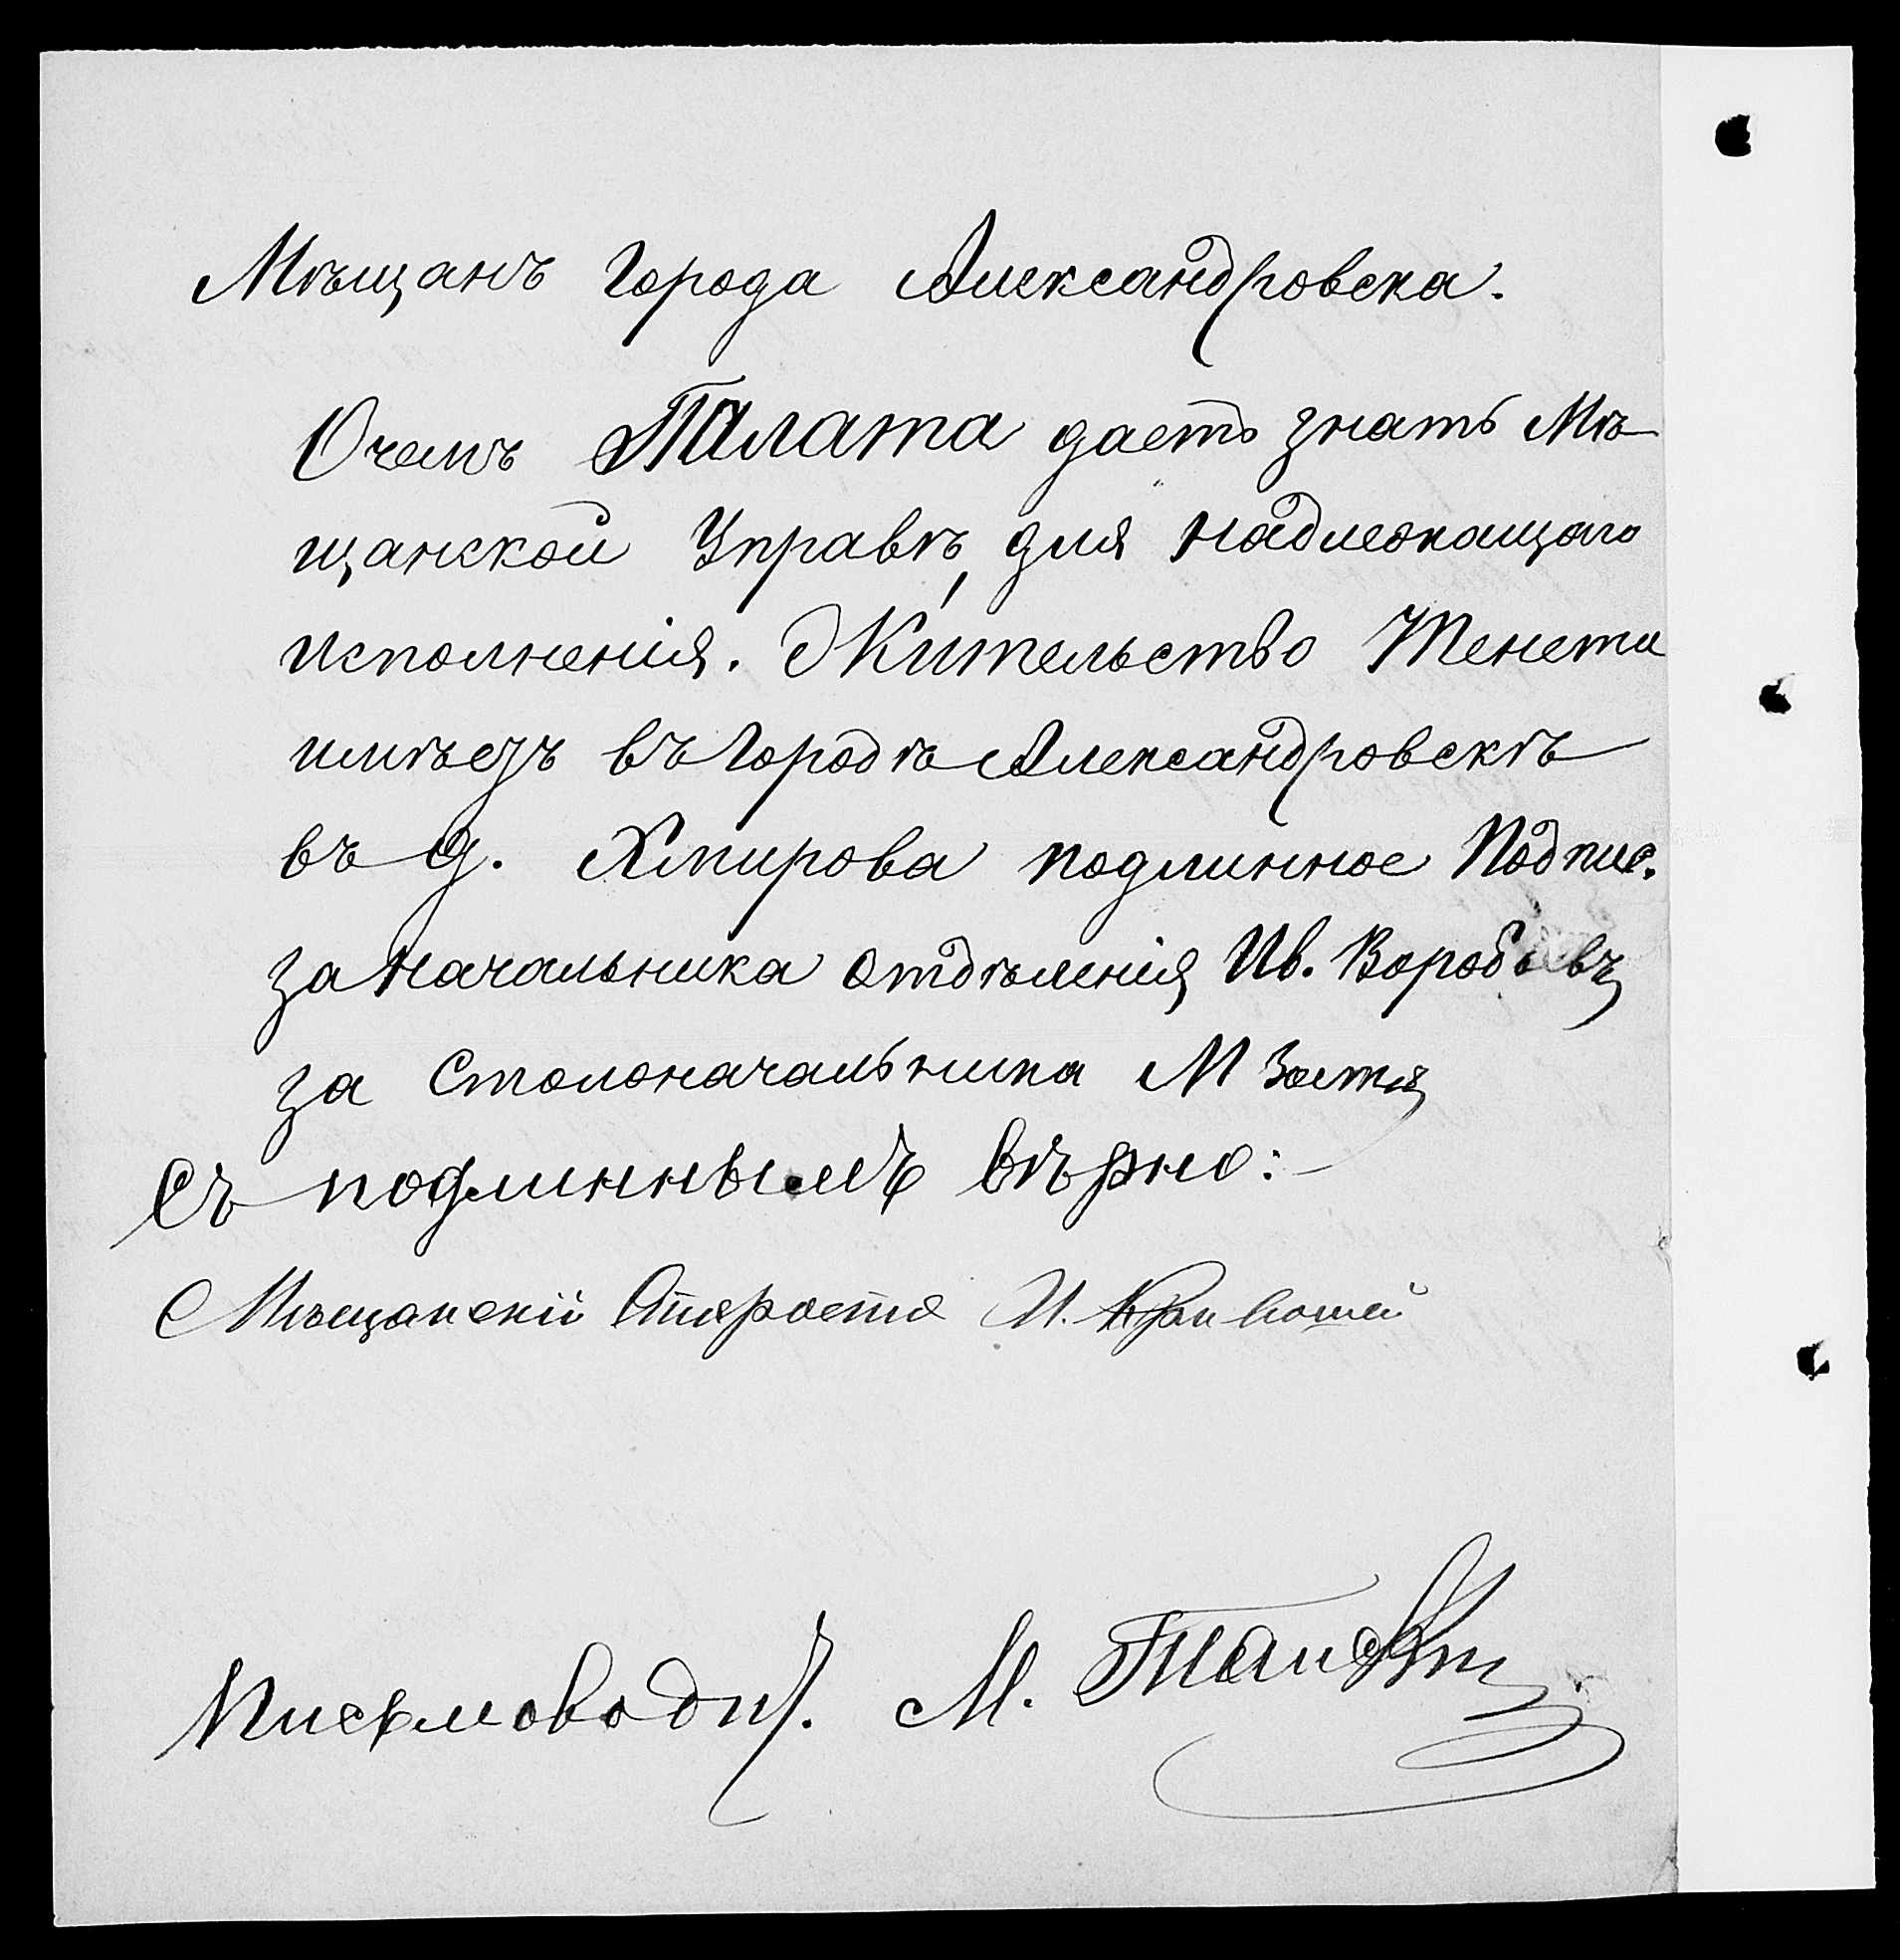 Мѣщанъ города Александровска.
Очемъ Палата даетъ знать Мѣ-
щанской Управѣ, для надлежащаго
исполненія. Жительство
имѣетъ въ городѣ Александровскѣ
въ д. Хмирова подлинное Подпис.
за Начальника отдѣленія Ив. Воробьевъ
за Столоначальника М
Съ подлиннымъ вѣрно:-
Мѣщанскій Староста И.
Письмоводит. М.